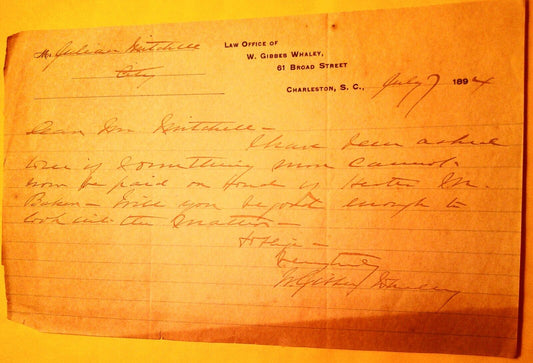 Mr Julian Mitchell
City
LAW OFFICE OF
W. GIBBES WHALEY,
61 BROAD STREET
CHARLESTON, S. C., July 7 1894
Dear Mr Mitchell –
I have been asked
to see if something more cannot
now be paid on Bond of Hester M.
Baker – Will you be good enough to
look into the matter –
& oblige –
Very truly
W. Gibbes Whaley